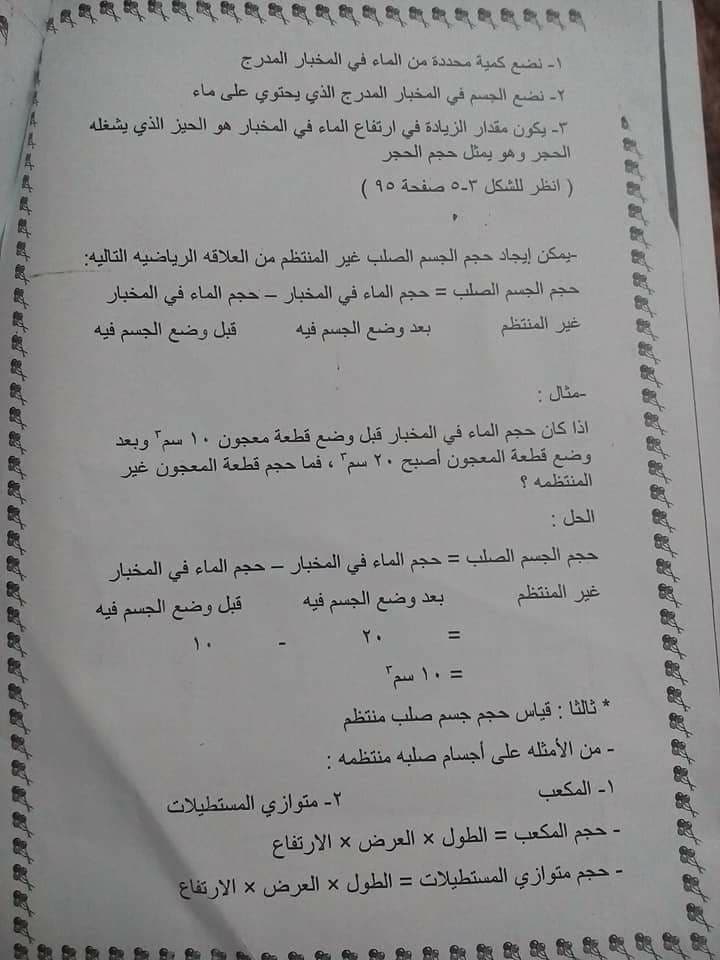 ١- نضع كمية محددة من الماء في المخبار المدرج
٢- نضع الجسم في المخبار المدرج الذي يحتوي على ماء
٣- يكون مقدار الزيادة في ارتفاع الماء في المخبار هو الحيز الذي يشغله
الحجر وهو يمثل حجم الحجر
( انظر للشكل ٣-٥ صفحة ٩٥ )
-يمكن إيجاد حجم الجسم الصلب غير المنتظم من العلاقه الرياضيه التاليه:
حجم الجسم الصلب = حجم الماء في المخبار – حجم الماء في المخبار
غير المنتظم بعد وضع الجسم فيه قبل وضع الجسم فيه
-مثال :
اذا كان حجم الماء في المخبار قبل وضع قطعة معجون ١٠ سم٣ وبعد
وضع قطعة المعجون أصبح ٢٠ سم٣ ، فما حجم قطعة المعجون غير
المنتظمه ؟
الحل :
حجم الجسم الصلب = حجم الماء في المخبار – حجم الماء في المخبار
غير المنتظم بعد وضع الجسم فيه قبل وضع الجسم فيه
= ٢٠ - ١٠
= ١٠ سم٣
* ثالثا : قياس حجم جسم صلب منتظم
- من الأمثله على أجسام صلبه منتظمه :
١- المكعب ٢- متوازي المستطيلات
- حجم المكعب = الطول × العرض × الارتفاع
- حجم متوازي المستطيلات = الطول × العرض × الارتفاع